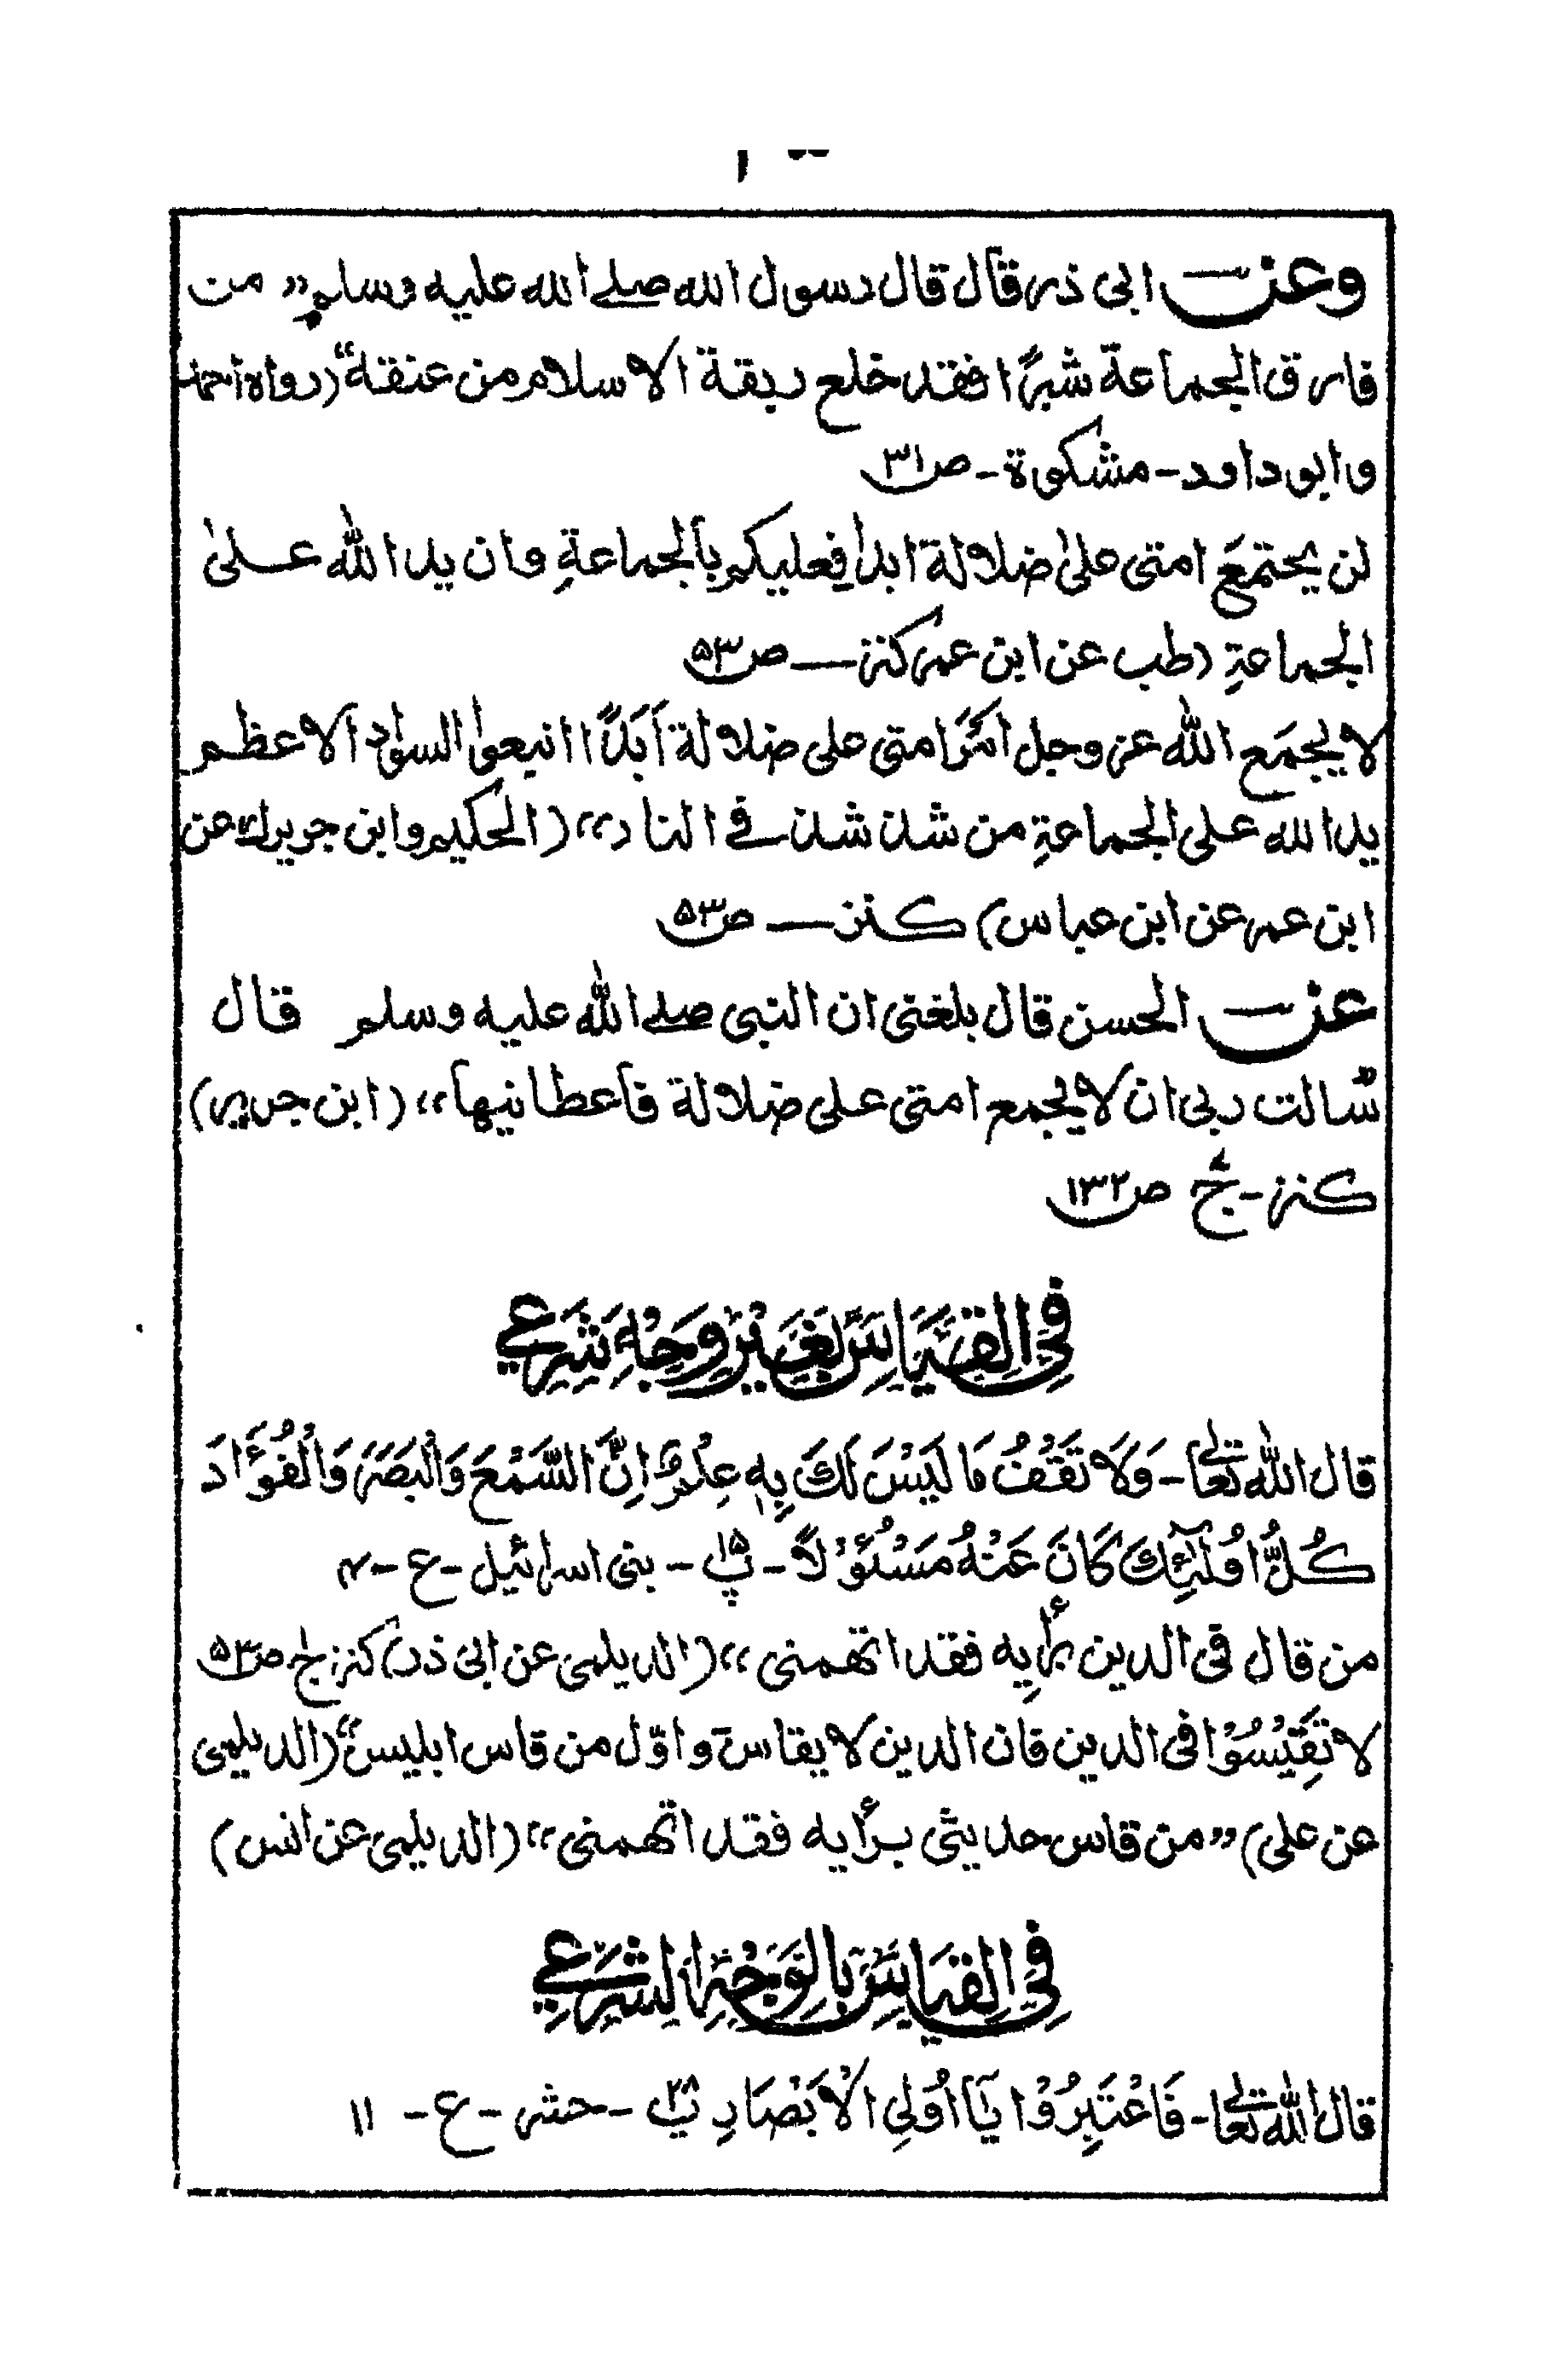 وعن ابی ذر قال قال رسول الله صلے الله علیه وسلم " من
فارق الجماعة شبرًا فقد خلع ربقة الاسلام من عنقه" (رواه احمد
وابوداود - مشکوة - ص۳۱
لن یجتمعَ امتی علیٰ ضلالة ابدا فعلیکم بالجماعةِ وان ید الله علیٰ
الجماعةِ (طب عن ابن عمر کنز — ص۵۳
لا یجمَع الله عز وجل امَرَ امتی علی ضلالة اَبَدًا اتبعوا السواد الاعظم
ید الله علی الجماعةِ من شذ شذ فے النار" (الحکیم وابن جریر ك عن
ابن عمر عن ابن عباس) کنز — ص۵۳
عن الحسن قال بلغنی ان النبی صلے الله علیه وسلم قال
سالت ربی ان لا یجمع امتی علی ضلالة فاعطانیها" (ابن جریر)
کنز - ج ص۱۳۲
فِی القِیَاسِ بِغَیْرِ وَجْهِ شَرْعِی
قال الله تعالٰی - وَلَا تَقْفُ مَا لَیْسَ لَكَ بِهٖ عِلْمٌ اِنَّ السَّمْعَ وَالْبَصَرَ وَالْفُؤَادَ
کُلُّ اُولٰٓئِكَ کَانَ عَنْهُ مَسْئُوْلًا - پ۱۵ - بنی اسرائیل - ع - ۴
من قال فی الدین برأیه فقد اتهمنی" (الدیلمی عن ابی ذر) کنز ج۱ ص۵۳
لا تَقِیْسُوْا فی الدین فان الدین لا یقاس واوّل من قاس ابلیس" (الدیلمی
عن علی) "من قاس حدیثی برأیه فقد اتهمنی" (الدیلمی عن انس)
فِی القِیَاسِ بِالوَجْهِ الشَرْعِی
قال الله تعالٰی - فَاعْتَبِرُوْا یَآ اُولِی الْاَبْصَارِ پ۲۸ - حشر - ع - ۱۱